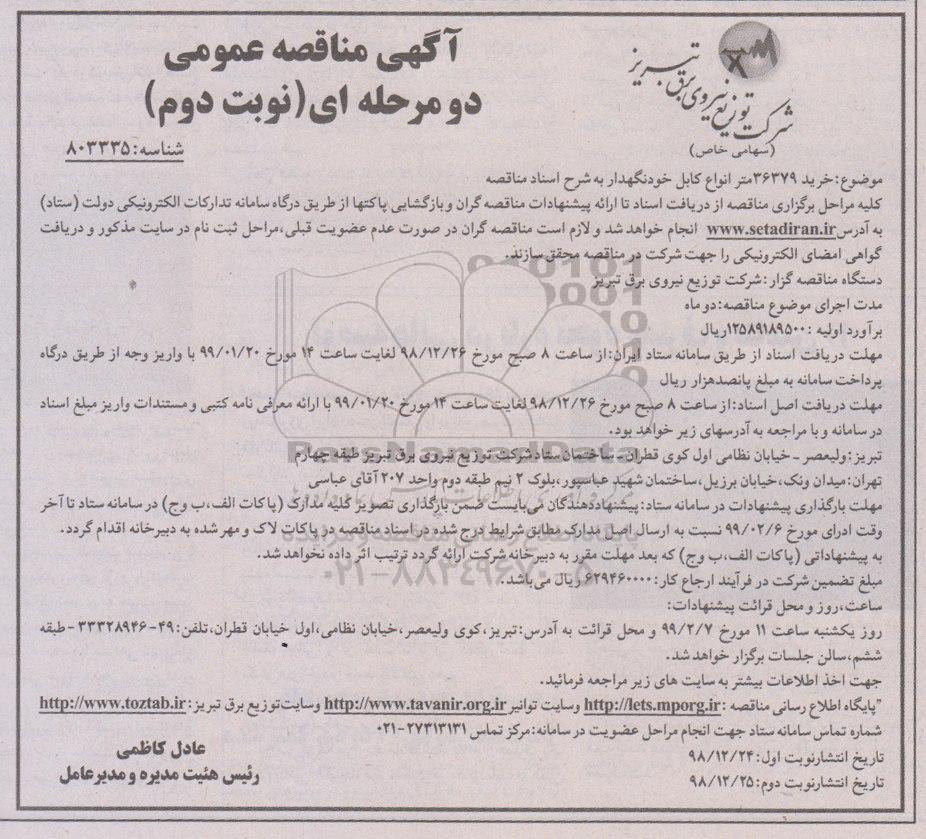 آگهی مناقصه عمومی
دو مرحله ای (نوبت دوم)
شرکت توزیع نیروی برق تبریز
(سهامی خاص)
شناسه: ۸۰۳۳۳۵
موضوع: خرید ۳۶۳۷۹متر انواع کابل خودنگهدار به شرح اسناد مناقصه
کلیه مراحل برگزاری مناقصه از دریافت اسناد تا ارائه پیشنهادات مناقصه گران و بازگشایی پاکتها از طریق درگاه سامانه تدارکات الکترونیکی دولت (ستاد)
به آدرس www.setadiran.ir انجام خواهد شد و لازم است مناقصه گران در صورت عدم عضویت قبلی، مراحل ثبت نام در سایت مذکور و دریافت
گواهی امضای الکترونیکی را جهت شرکت در مناقصه محقق سازند.
دستگاه مناقصه گزار: شرکت توزیع نیروی برق تبریز
مدت اجرای موضوع مناقصه: دو ماه
برآورد اولیه : ۱۲۵۸۹۱۸۹۵۰۰ریال
مهلت دریافت اسناد از طریق سامانه ستاد ایران: از ساعت ۸ صبح مورخ ۹۸/۱۲/۲۶ لغایت ساعت ۱۴ مورخ ۹۹/۰۱/۲۰ با واریز وجه از طریق درگاه
پرداخت سامانه به مبلغ پانصدهزار ریال
مهلت دریافت اصل اسناد: از ساعت ۸ صبح مورخ ۹۸/۱۲/۲۶ لغایت ساعت ۱۴ مورخ ۹۹/۰۱/۲۰ با ارائه معرفی نامه کتبی و مستندات واریز مبلغ اسناد
در سامانه و با مراجعه به آدرسهای زیر خواهد بود.
تبریز: ولیعصر - خیابان نظامی اول کوی قطران - ساختمان ستاد شرکت توزیع نیروی برق تبریز طبقه چهارم
تهران: میدان ونک، خیابان برزیل، ساختمان شهید عباسپور، بلوک ۲ نیم طبقه دوم واحد ۲۰۷ آقای عباسی
مهلت بارگذاری پیشنهادات در سامانه ستاد: پیشنهاددهندگان می‌بایست ضمن بارگذاری تصویر کلیه مدارک (پاکات الف، ب وج) در سامانه ستاد تا آخر
وقت اداری مورخ ۹۹/۰۲/۶ نسبت به ارسال اصل مدارک مطابق شرایط درج شده در اسناد مناقصه در پاکات لاک و مهر شده به دبیرخانه اقدام گردد.
به پیشنهاداتی (پاکات الف، ب وج) که بعد مهلت مقرر به دبیرخانه شرکت ارائه گردد ترتیب اثر داده نخواهد شد.
مبلغ تضمین شرکت در فرآیند ارجاع کار: ۶۲۹۴۶۰۰۰۰ ریال می‌باشد.
ساعت، روز و محل قرائت پیشنهادات:
روز یکشنبه ساعت ۱۱ مورخ ۹۹/۲/۷ و محل قرائت به آدرس: تبریز، کوی ولیعصر، خیابان نظامی، اول خیابان قطران، تلفن: ۴۹-۳۳۳۲۸۹۴۶-طبقه
ششم، سالن جلسات برگزار خواهد شد.
جهت اخذ اطلاعات بیشتر به سایت های زیر مراجعه فرمائید.
"پایگاه اطلاع رسانی مناقصه : http://iets.mporg.ir وسایت توانیر http://www.tavanir.org.ir وسایت توزیع برق تبریز : http://www.toztab.ir
شماره تماس سامانه ستاد جهت انجام مراحل عضویت در سامانه: مرکز تماس ۲۷۳۱۳۱۳۱-۰۲۱
تاریخ انتشارنوبت اول: ۹۸/۱۲/۲۴
تاریخ انتشارنوبت دوم: ۹۸/۱۲/۲۵
عادل کاظمی
رئیس هئیت مدیره و مدیرعامل
ParsNamadData
۰۲۱-۸۸۳۴۹۶۷۰-۵